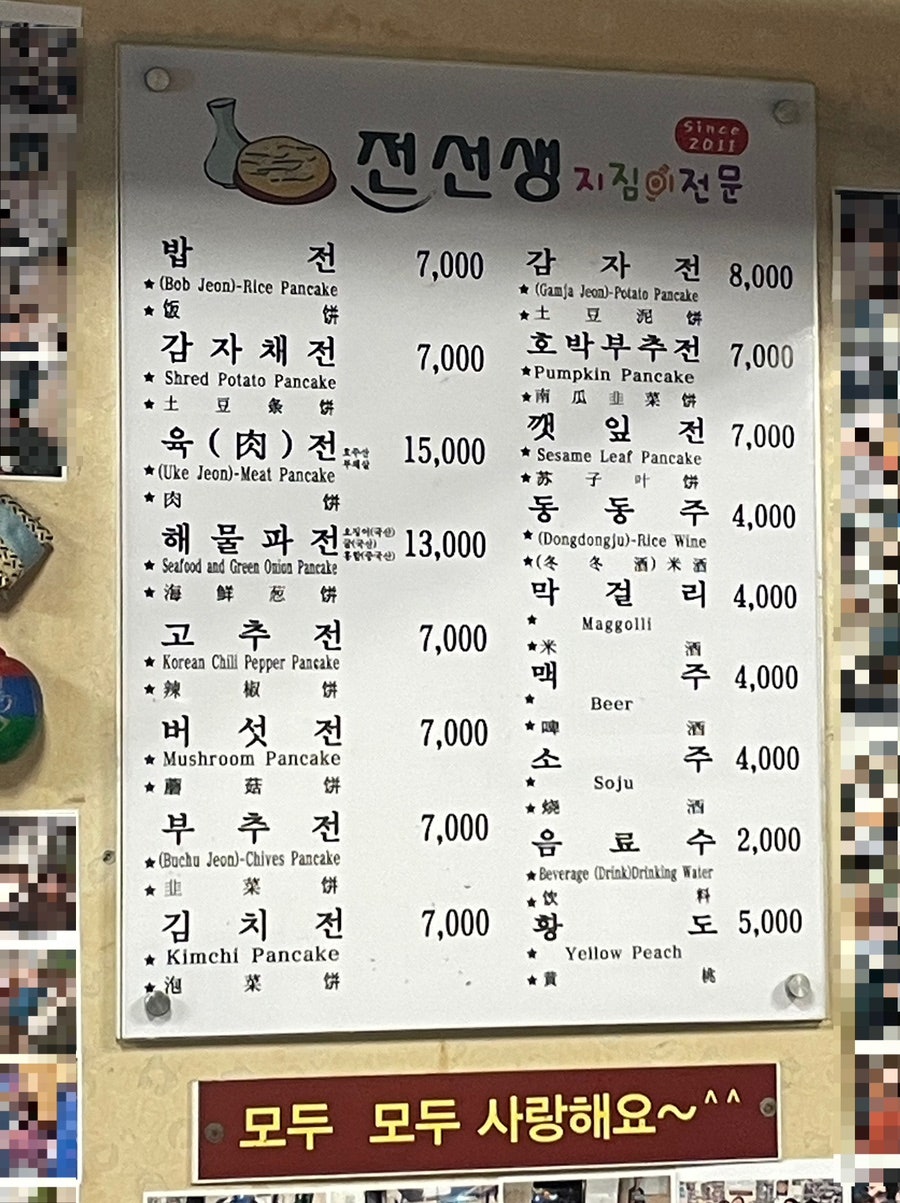 전선생 지짐이전문
Since
2011
밥 전 7,000
★(Bob Jeon)-Rice Pancake
★ 饭 饼
감 자 채 전 7,000
★ Shred Potato Pancake
★ 土 豆 条 饼
육 ( 肉 ) 전 호주산 부채살 15,000
★(Uke Jeon)-Meat Pancake
★ 肉 饼
해 물 파 전 오징어(국산) 굴(국산) 홍합(중국산) 13,000
★ Seafood and Green Onion Pancake
★ 海 鲜 葱 饼
고 추 전 7,000
★ Korean Chili Pepper Pancake
★ 辣 椒 饼
버 섯 전 7,000
★ Mushroom Pancake
★ 蘑 菇 饼
부 추 전 7,000
★(Buchu Jeon)-Chives Pancake
★ 韭 菜 饼
김 치 전 7,000
★ Kimchi Pancake
★ 泡 菜 饼
감 자 전 8,000
★ (Gamja Jeon)-Potato Pancake
★ 土 豆 泥 饼
호박부추전 7,000
★Pumpkin Pancake
★南 瓜 韭 菜 饼
깻 잎 전 7,000
★ Sesame Leaf Pancake
★ 苏 子 叶 饼
동 동 주 4,000
★ (Dongdongju)-Rice Wine
★(冬 冬 酒) 米 酒
막 걸 리 4,000
★ Maggolli
★米 酒
맥 주 4,000
★ Beer
★ 啤 酒
소 주 4,000
★ Soju
★ 烧 酒
음 료 수 2,000
★Beverage (Drink)Drinking Water
★ 饮 料
황 도 5,000
★ Yellow Peach
★ 黄 桃
모두 모두 사랑해요~^^